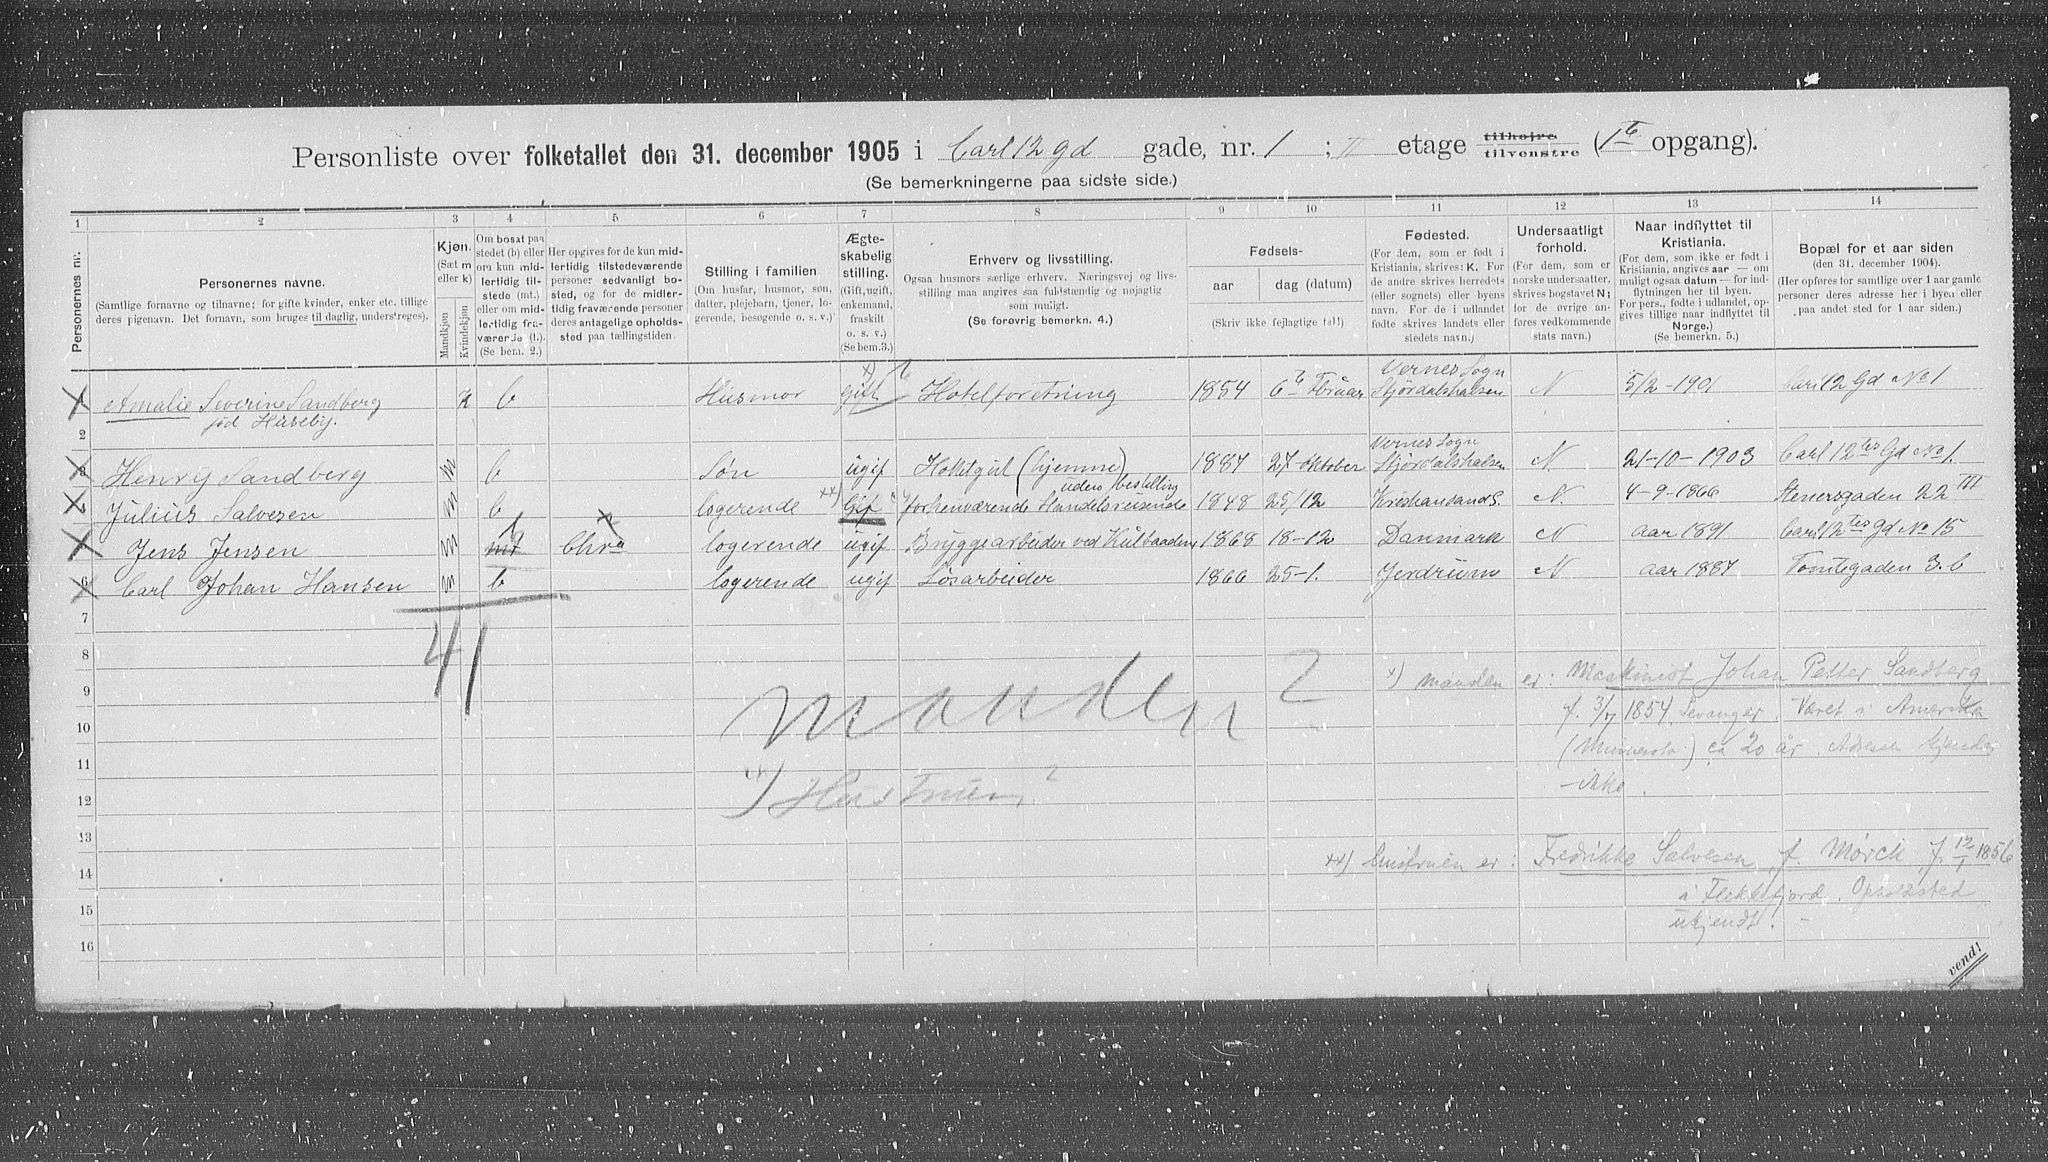 Personliste over folketallet den 31. december 1905 i Carl 12 Gd gade, nr. 1 ; II etage tilhøjre tilvenstre (1te opgang).
(Se bemerkningerne paa sidste side.)
1 2 3 4 5 6 7 8 9 10 11 12 13 14
Personernes nr.
Personernes navne.
(Samtlige fornavne og tilnavne; for gifte kvinder, enker etc. tillige
deres pigenavn. Det fornavn, som bruges til daglig, understreges).
Kjøn.
(Sæt m
eller k)
Mandkjøn
Kvindekjøn
Om bosat paa
stedet (b) eller
om kun mid-
lertidig til-
stede (mt.)
eller om mid-
lertidig fra-
værende (f.)
(Se bem. 2.)
Her opgives for de kun mid-
lertidig tilstedeværende
personer sedvanlig bo-
sted, og for de midler-
tidig fraværende personer
deres antagelige opholds-
sted paa tællingstiden.
Stilling i familien
(Om husfar, husmor, søn,
datter, plejebarn, tjener, lo-
gerende, besøgende o. s. v.)
Ægte-
skabelig
stilling.
(Gift, ugift,
enkemand,
fraskilt
o. s. v.)
(Se bem.3.)
Erhverv og livsstilling.
Ogsaa husmors særlige erhverv. Næringsvej og livs-
stilling maa angives saa fuldstændig og nøjagtig
som muligt.
(Se forøvrig bemerkn. 4.)
Fødsels-
aar dag (datum)
(Skriv ikke fejlagtige tal!)
Fødested.
(For dem, som er født i
Kristiania, skrives: K. For
de andre skrives herredets
(eller sognets) eller byens
navn. For de i udlandet
fødte skrives landets eller
stedets navn.)
Undersaatligt
forhold.
(For dem, som er
norske undersaatter,
skrives bogstavet N;
for de øvrige an-
føres vedkommende
stats navn.)
Naar indflyttet til
Kristiania.
(For dem, som ikke er født i
Kristiania, angives aar — om
muligt ogsaa datum — for ind-
flytningen her til byen.
For pers., fødte i udlandet, op-
gives tillige naar indflyttet til
Norge.)
(Se bemerkn. 5.)
Bopæl for et aar siden
(den 31. december 1904).
(Her opføres for samtlige over 1 aar gamle
personer deres adresse her i byen eller
paa andet sted for 1 aar siden.)
Vernes Sogn
1 Amalie Severine Sandberg k b Husmor Gift Hotelforretning 1854 6te Februar Stjördalshalsen N 5/2-1901 Carl 12 Gd No 1
fød Huseby.
2
Vernes Sogn
3 Henry Sandberg m b Søn ugif Hotelgut (hjemme) 1887 27 oktober Stjördalshalsen N. 21-10-1903 Carl 12tes Gd No 1.
uden bestilling
4 Julius Salvesen m b logerende xx) Gif forhenværende Handelsreisende 1848 25/12 Kristiansand S. N. 4-9-1866 Stenersgaden 22 III
5 Jens Jensen m mt b Chra logerende ugif Bryggearbeider ved Kulbaadene 1868 18-12 Danmark N aar 1891 Carl 12tes Gd No 15
6 Carl Johan Hansen m b logerende ugif Løsarbeider 1866 25-1. Jerdrum N aar 1887 Tomtegaden 3.b
7
4 1
8
9
10
11
12
13
14
15
16
manden?
xx) Hustruen?
x) manden er: Maskinist Johan Petter Sandberg
f. 3/7 1854, Levanger. Været i Amerika
(Minnesota.) ca 20 år. Adresse kjendes
ikke.
xx) Hustruen er: Fredrikke Salvesen f. Mørck f. 12/1 1856
i Flekkefjord. Opholdsted
ukjendt. -
vend!